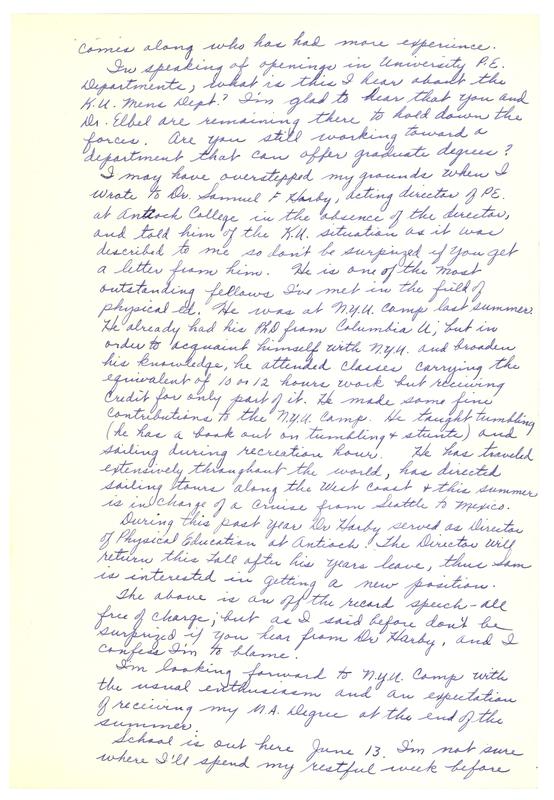 comes along who has had more experience.
In speaking of openings in University P.E.
Departments, what is this I hear about the
K.U. Mens Dept? I'm glad to hear that you and
Dr. Elbel are remaining there to hold down the
forces. Are you still working toward a
department that can offer graduate degrees?
I may have overstepped my grounds when I
wrote to Dr. Samuel F Harby, acting director of P.E.
at Antioch College in the absence of the director,
and told him of the K.U. situation as it was
described to me so don't be surprized if you get
a letter from him. He is one of the most
outstanding fellows I've met in the field of
physical ed. He was at N.Y.U. Camp last summer.
He already had his PhD from Columbia U; but in
order to acquaint himself with N.Y.U. and broaden
his knowledge, he attended classes carrying the
equivalent of 10 or 12 hours work but receiving
credit for only part of it. He made some fine
contributions to the N.Y.U. Camp. He taught tumbling
(he has a book out on tumbling & stunts) and
sailing during recreation hour. He has traveled
extensively throughout the world, has directed
sailing tours along the West Coast & this summer
is in charge of a cruise from Seattle to Mexico.
During this past year Dr Harby served as Director
of Physical Education at Antioch. The Director will
return this Fall after his years leave, thus Sam
is interested in getting a new position.
The above is an off the record speech - all
free of charge; but as I said before don't be
surprized if you hear from Dr Harby, and I
confess I'm to blame.
I'm looking forward to N.Y.U. Camp with
the usual enthusiasm and an expectation
of reciving my M.A. Degree at the end of the
summer.
School is out here June 13. I'm not sure
where I'll spend my restful week before